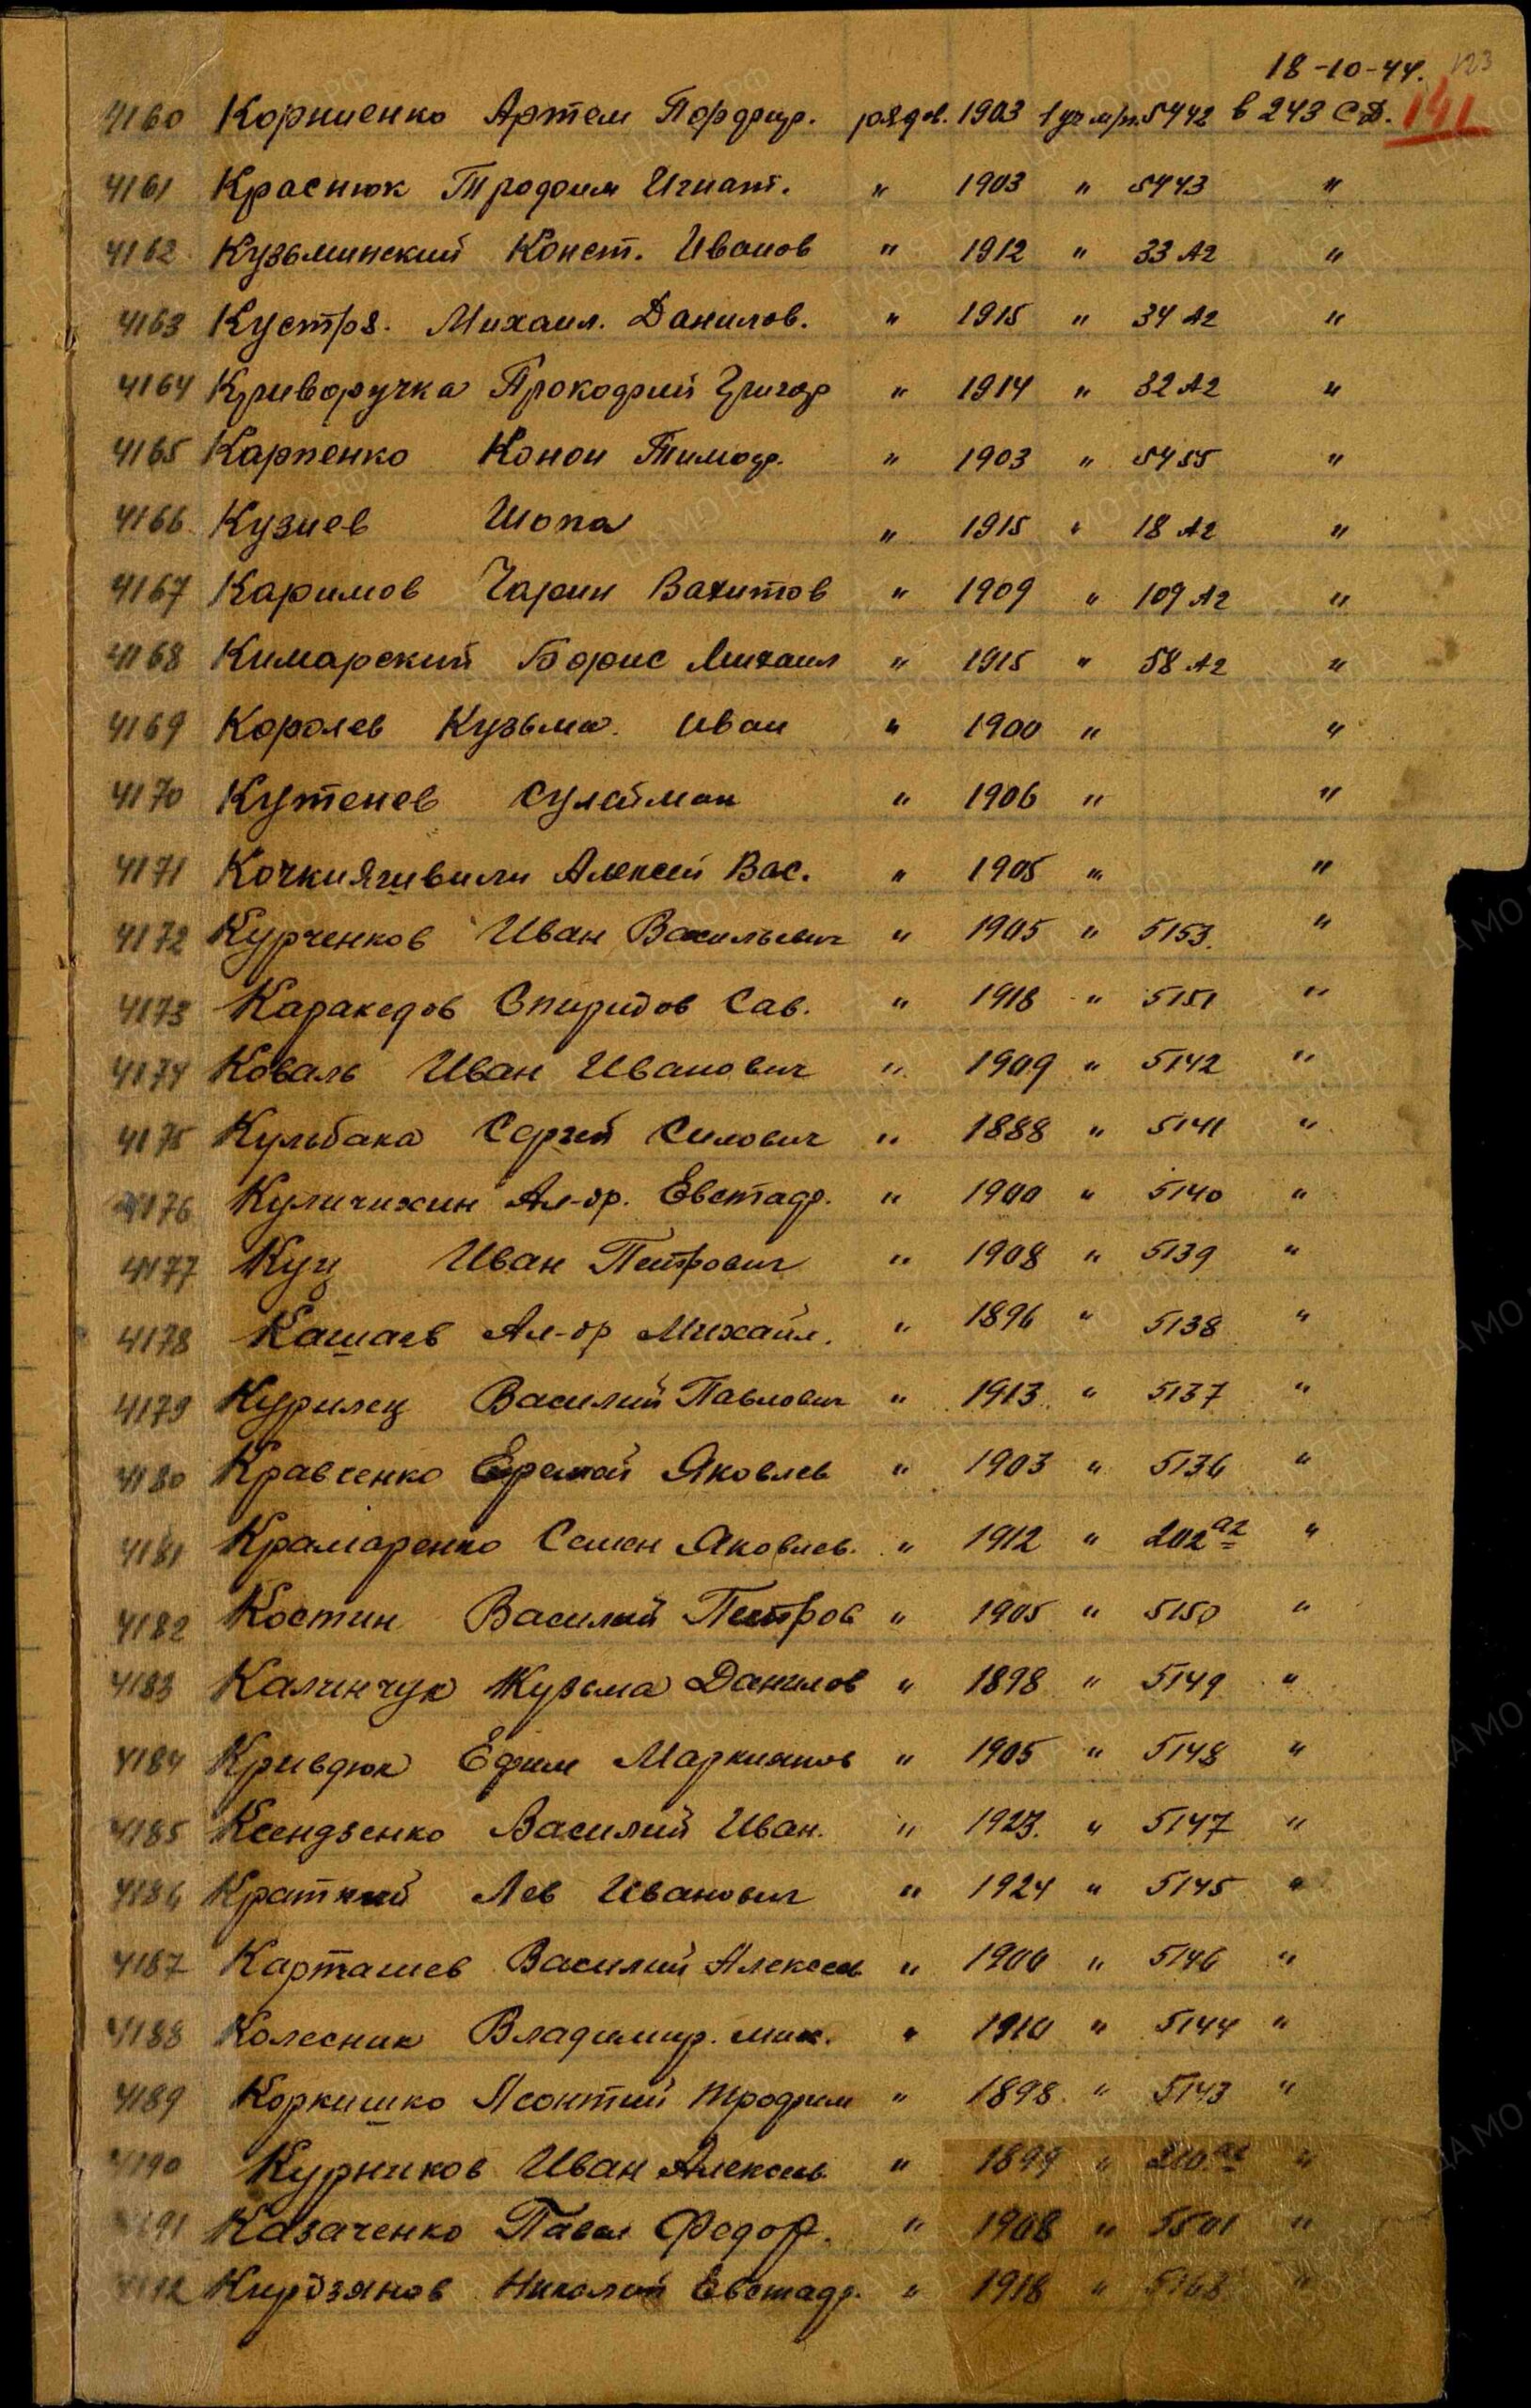 18-10-44. 123
4160 Корниенко Артем Порфир. рядов. 1903 5442 в 243 СД. 141
4161 Краснюк Трофим Игнат. " 1903 " 5443 "
4162 Кузьминский Конст. Иванов " 1912 " 33 А2 "
4163 Кустря. Михаил. Данилов. " 1915 " 34 А2 "
4164 Криворучка Прокофий Григор " 1914 " 32 А2 "
4165 Карпенко Конон Тимоф. " 1903 " 5455 "
4166 Кузиев Шопа " 1915 " 18 А2 "
4167 Каримов Гарин Вахитов " 1909 " 109 А2 "
4168 Кимарский Борис Михаил " 1915 " 58 А2 "
4169 Королев Кузьма. Иван " 1900 " "
4170 Кутенев Сулейман " 1906 " "
4171 Алексей Вас. " 1905 " "
4172 Курченков Иван Васильевич " 1905 " 5153. "
4173 Каракедов Спиридов Сав. " 1918 " 5151 "
4174 Коваль Иван Иванович " 1909 " 5142 "
4175 Кульбака Сергей Силович " 1888 " 5141 "
4176 Куличихин Ал-др. Евстаф. " 1900 " 5140 "
4177 Куц Иван Петрович " 1908 " 5139 "
4178 Кашаев Ал-др Михайл. " 1896 " 5138 "
4179 Курилец Василий Павлович " 1913 " 5137 "
4180 Кравченко Еремей Яковлев " 1903 " 5136 "
4181 Крамаренко Семен Яковлев. " 1912 " 202 а2 "
4182 Костин Василий Петров " 1905 " 5150 "
4183 Калинчук Кузьма Данилов " 1898 " 5149 "
4184 Кривдюк Ефим Маркианов " 1905 " 5148 "
4185 Ксендзенко Василий Иван. " 1923. " 5147 "
4186 Краткий Лев Иванович " 1924 " 5145 "
4187 Карташев Василий Алексеев " 1900 " 5146 "
4188 Колесник Владимир. мик. " 1910 " 5144 "
4189 Коркишко Леонтий Трофим " 1898 " 5143 "
4190 Курников Иван Алексеев " 1899 " 210 а2 "
4191 Казаченко Павел Федор. " 1908 " 5501 "
Кирдзянов Николай Евстаф. " 1918 " 5168 "